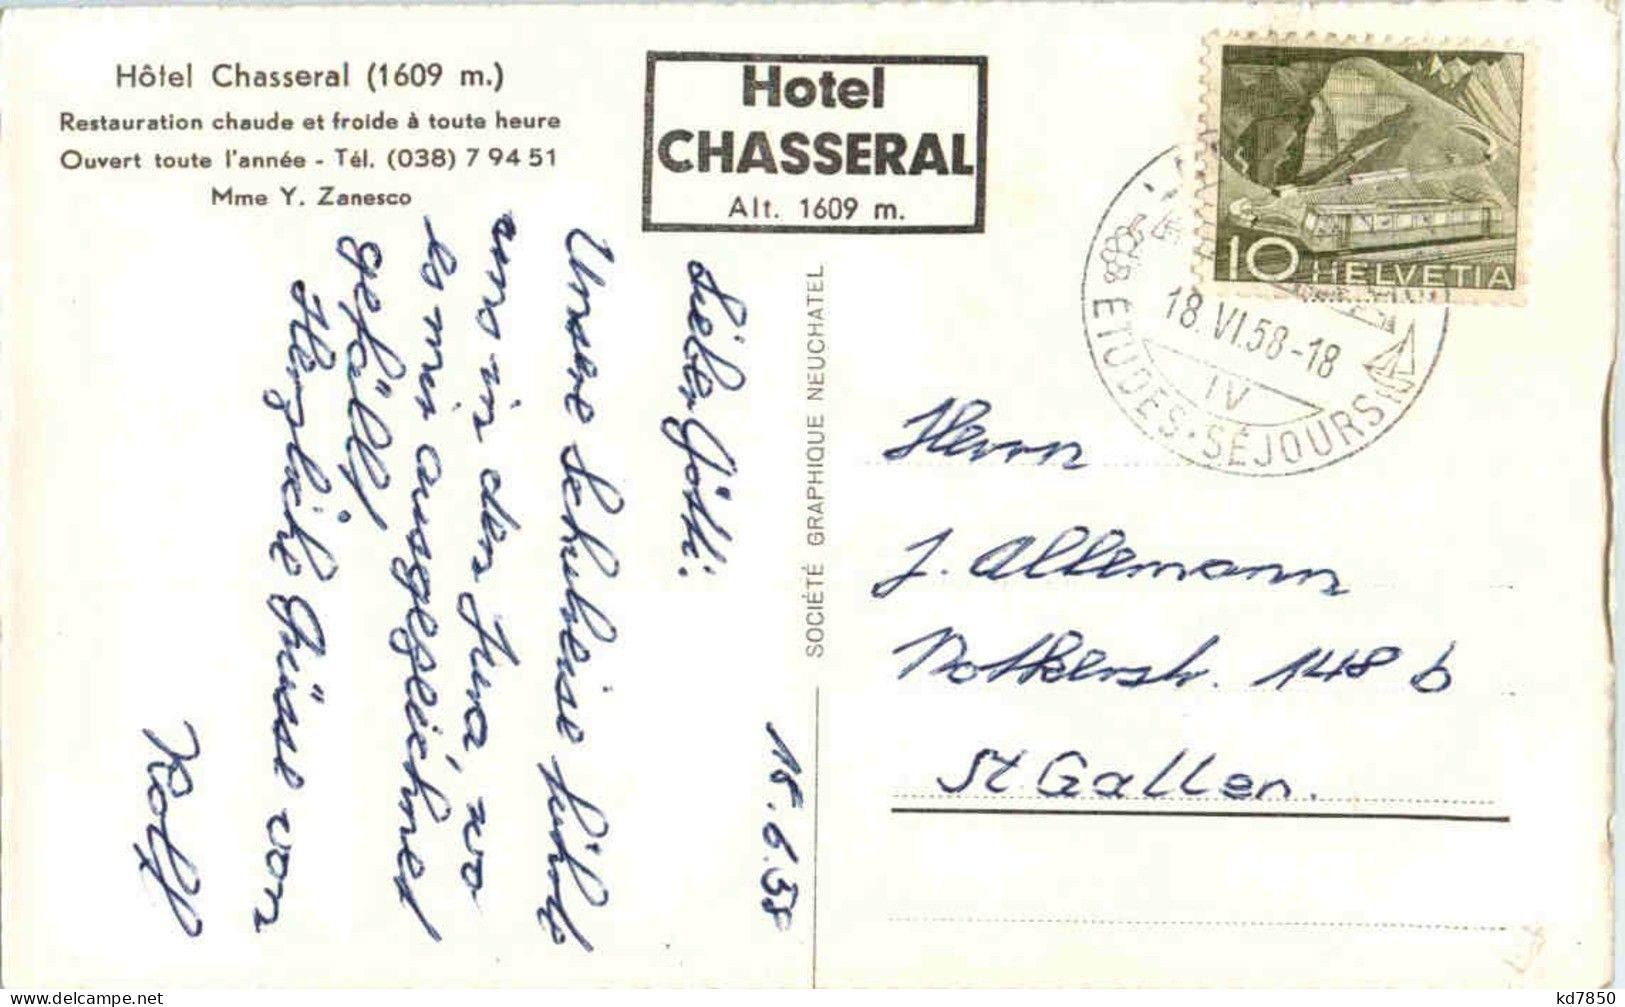 Hôtel Chasseral (1609 m.)
Restauration chaude et froide à toute heure
Ouvert toute l'année - Tél. (038) 7 94 51
Mme Y. Zanesco
Hotel
CHASSERAL
Alt. 1609 m.
10 HELVETIA
18.VI.58-18
IV
ÉTUDES·SÉJOURS
SOCIÉTÉ GRAPHIQUE NEUCHATEL
18.6.58
Lieber Götti.
Unsere Schulreise führte
uns in den Jura, wo
es mir ausgezeichnet
gefällt
Herzliche Grüsse von
Rolf
Herrn
J. Allemann
Notkerstr. 148 b
St. Gallen.
kd7850